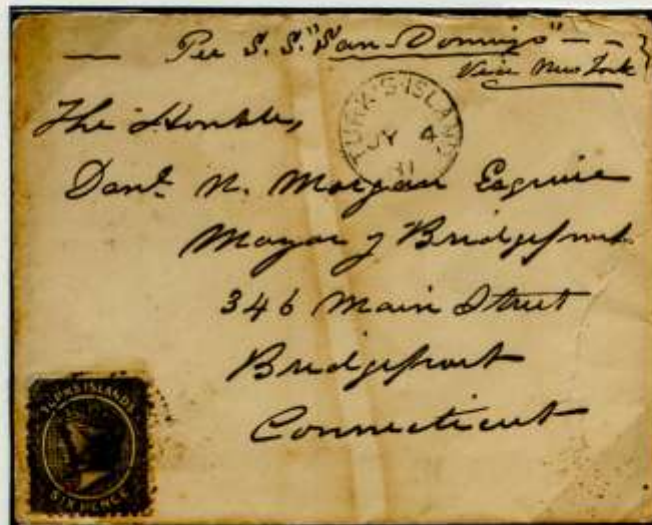 — Per S. S. "San Domingo" —
Via New York
TURK'S·ISLAND
JY 4
81
The Honble,
Danl. N. Morgan Esquire
Mayor of Bridgeport
346 Main Street
Bridgeport
Connecticut
TURKS ISLANDS
SIX PENCE